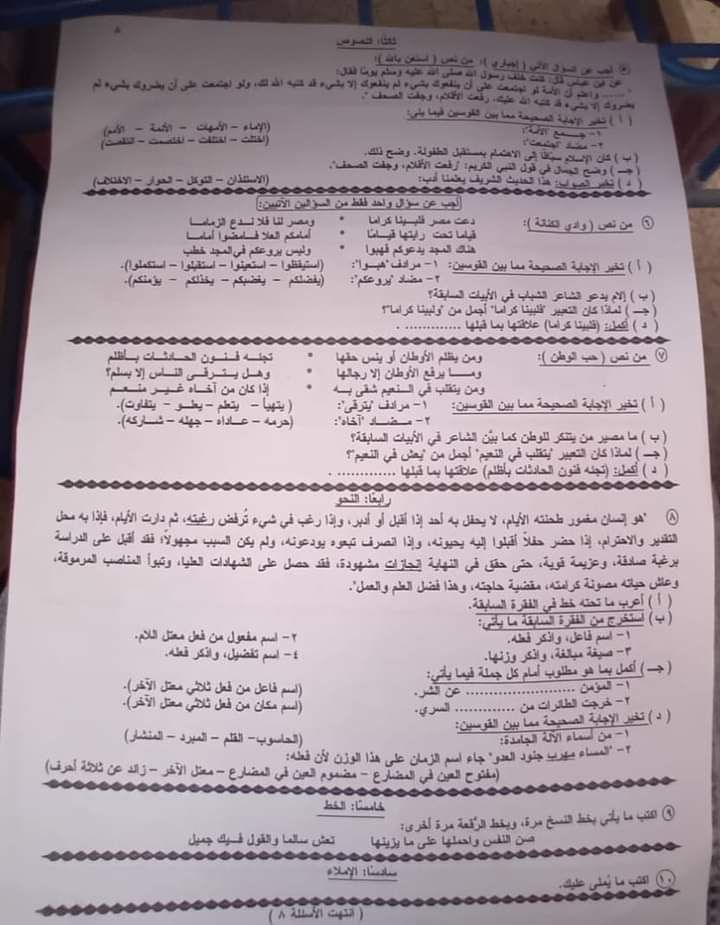 ٨
ثالثًا: النصوص
٥ أجب عن السؤال الآتي ( إجباري ): من نص ( استعن بالله ):
عن ابن عباس قال: كنت خلف رسول الله صلى الله عليه وسلم يومًا فقال:
" ...... واعلم أن الأمة لو اجتمعت على أن ينفعوك بشيء لم ينفعوك إلا بشيء قد كتبه الله لك، ولو اجتمعت على أن يضروك بشيء لم
يضروك إلا بشيء قد كتبه الله عليك، رفعت الأقلام، وجفت الصحف ".
( أ ) تخير الإجابة الصحيحة مما بين القوسين فيما يلي:
١- جـــمع "الأمة": (الإماء – الأمهات – الأئمة – الأمم)
٢- مضاد "اجتمعت": (اختلت – اختلفت – اختصمت – انتقصت)
( ب ) كان الإسلام سبّاقًا إلى الاهتمام بمستقبل الطفولة. وضح ذلك.
( جـ ) وضح الجمال في قول النبي الكريم: "رفعت الأقلام، وجفت الصحف".
( د ) تخير الصواب: هذا الحديث الشريف يعلمنا أدب: (الاستئذان – التوكل – الحوار – الاختلاف)
أجب عن سؤال واحد فقط من السؤالين الآتيين:
٦ من نص ( وادي الكنانة ): دعت مصر فلبينا كراما * ومصر لنا فلا ندع الزماما
قياما تحت رايتها قيامًا * أمامكم العلا فامضوا أماما
هناك المجد يدعوكم فهبوا * وليس يروعكم في المجد خطب
( أ ) تخير الإجابة الصحيحة مما بين القوسين: ١- مرادف "هبوا": (استيقظوا – استعينوا – استقبلوا – استكملوا).
٢- مضاد "يروعكم": (يفضلكم – يغضبكم – يخذلكم – يؤمنكم).
( ب ) إلام يدعو الشاعر الشباب في الأبيات السابقة؟
( جـ ) لماذا كان التعبير "فلبينا كراما" أجمل من "ولبينا كراما"؟
( د ) أكمل: (فلبينا كراما) علاقتها بما قبلها .............. .
٧ من نص ( حب الوطن ): ومن يظلم الأوطان أو ينس حقها * تجئه فنون الحادثات بأظلم
وما يرفع الأوطان إلا رجالها * وهل يترقى الناس إلا بسلم؟
ومن يتقلب في النعيم شقى به * إذا كان من آخاه غير منعم
( أ ) تخير الإجابة الصحيحة مما بين القوسين: ١- مرادف "يترقى": ( يتهيأ – يتعلم – يعلو – يتفاوت).
٢- مضاد "آخاه": (حرمه – عاداه – جهله – شاركه).
( ب ) ما مصير من يتنكر للوطن كما بيّن الشاعر في الأبيات السابقة؟
( جـ ) لماذا كان التعبير "يتقلب في النعيم" أجمل من "يعش في النعيم"؟
( د ) أكمل: (تجئه فنون الحادثات بأظلم) علاقتها بما قبلها .............. .
رابعًا: النحو
٨ "هو إنسان مغمور طحنته الأيام، لا يحفل به أحد إذا أقبل أو أدبر، وإذا رغب في شيء تُرفض رغبته، ثم دارت الأيام، فإذا به محل
التقدير والاحترام، إذا حضر حفلاً أقبلوا إليه يحيونه، وإذا انصرف تبعوه يودعونه، ولم يكن السبب مجهولاً؛ فقد أقبل على الدراسة
برغبة صادقة، وعزيمة قوية، حتى حقق في النهاية إنجازات مشهودة، فقد حصل على الشهادات العليا، وتبوأ المناصب المرموقة،
وعاش حياته مصونة كرامته، مقضية حاجته، وهذا فضل العلم والعمل".
( أ ) أعرب ما تحته خط في الفقرة السابقة.
( ب ) استخرج من الفقرة السابقة ما يأتي:
١- اسم فاعل، واذكر فعله. ٢- اسم مفعول من فعل معتل اللام.
٣- صيغة مبالغة، واذكر وزنها. ٤- اسم تفضيل، واذكر فعله.
( جـ ) أكمل بما هو مطلوب أمام كل جملة فيما يأتي:
١- المؤمن ...................... عن الشر. (اسم فاعل من فعل ثلاثي معتل الآخر).
٢- خرجت الطائرات من ............. السري. (اسم مكان من فعل ثلاثي معتل الآخر).
( د ) تخير الإجابة الصحيحة مما بين القوسين:
١- من أسماء الآلة الجامدة: (الحاسوب- القلم – المبرد – المنشار)
٢- "المساء مهرب جنود العدو" جاء اسم الزمان على هذا الوزن لأن فعله:
(مفتوح العين في المضارع – مضموم العين في المضارع – معتل الآخر – زائد عن ثلاثة أحرف)
خامسًا: الخط
٩ اكتب ما يأتي بخط النسخ مرة، وبخط الرُّقعة مرة أخرى:
صن النفس واحملها على ما يزينها تعش سالما والقول فيك جميل
سادسًا: الإملاء
١٠ اكتب ما يُملى عليك.
( انتهت الأسئلة ٨ )